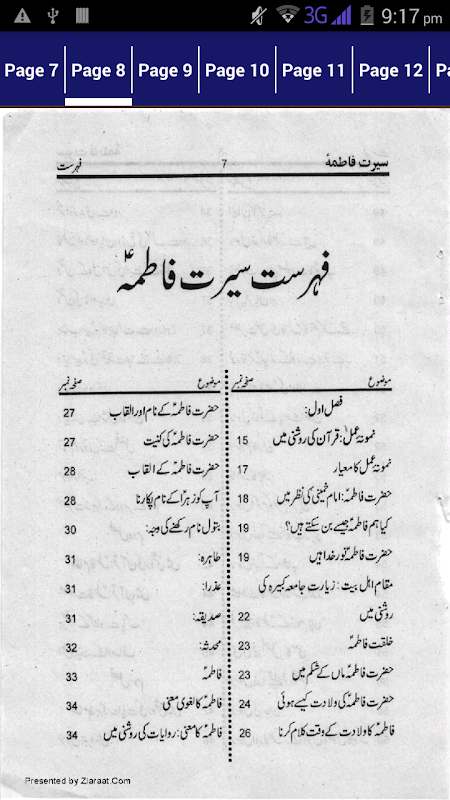 3G 9:17 pm
Page 7 Page 8 Page 9 Page 10 Page 11 Page 12 Pa
سیرت فاطمہؑ 7 فہرست
فہرست سیرت فاطمہؑ
موضوع صفحہ نمبر
فصل اول:
نمونۂ عمل: قرآن کی روشنی میں 15
نمونۂ عمل کا معیار 17
حضرت فاطمہؑ: امام خمینی کی نظر میں 18
کیا ہم فاطمہؑ جیسے بن سکتے ہیں؟ 19
حضرت فاطمہؑ نور خدا ہیں 19
مقام اہل بیت: زیارت جامعہ کبیرہ کی
روشنی میں 22
خلقت فاطمہؑ 23
حضرت فاطمہؑ ماں کے شکم میں 23
حضرت فاطمہؑ کی ولادت کیسے ہوئی 24
فاطمہؑ کا ولادت کے وقت کلام کرنا 26
موضوع صفحہ نمبر
حضرت فاطمہؑ کے نام اور القاب 27
حضرت فاطمہؑ کی کنیت 27
حضرت فاطمہؑ کے القاب 28
آپ کو زہراؑ کے نام پکارنا 28
بتول نام رکھنے کی وجہ: 30
طاہرہ: 31
عذرا: 31
صدیقہ: 31
محدثہ: 32
فاطمہؑ 33
فاطمہؑ کا لغوی معنی 34
فاطمہؑ کا معنی: روایات کی روشنی میں 34
Presented by Ziaraat.Com